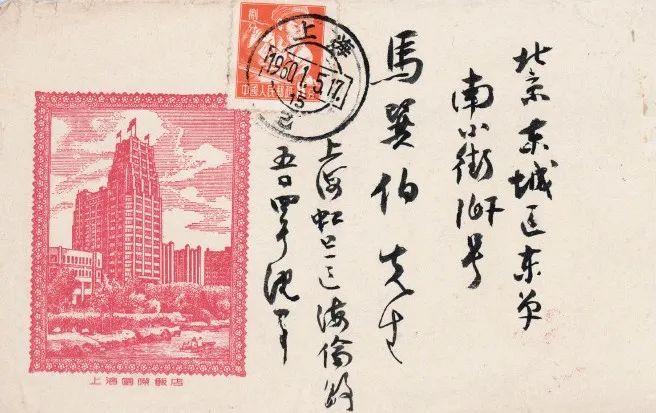 北京东城区东单
南小街167号
馬巽伯先生
上海虹口区海倫路
五〇四号沈
捌分
中國人民郵政
上海
1960.1.5.17
15
上海國際飯店